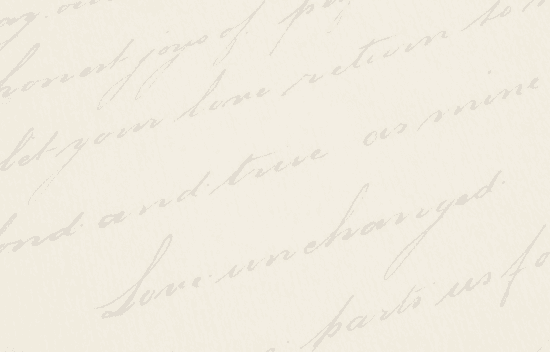 honest joys of
let your love return to
fond and true as mine
Love unchanged.
parts us